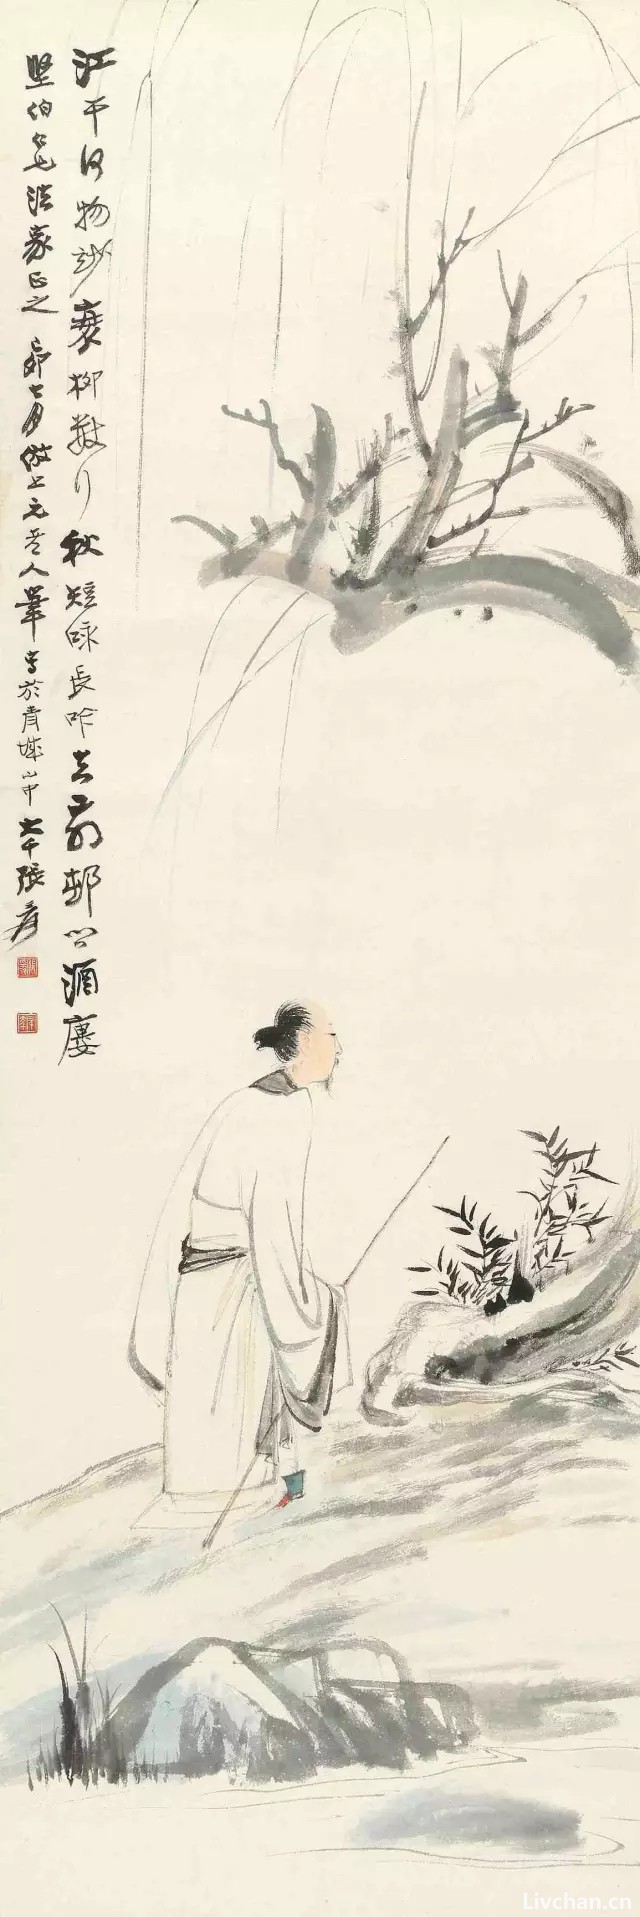 江干何物妙衰柳数行秋短咏长吟去前邨问酒廔
坚伯仁兄法家正之 己卯七月仿上元老人笔写於青城山中 大千张爰
Livchan.cn